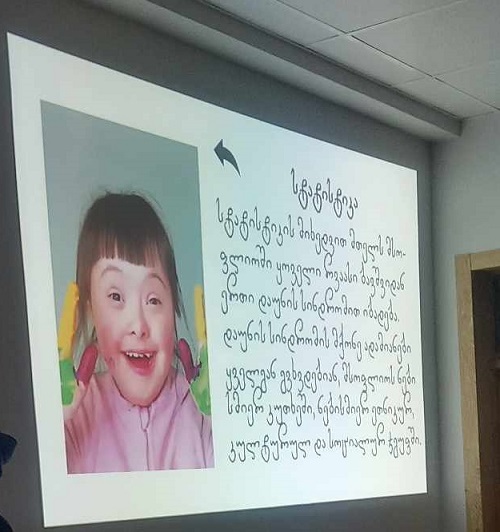 სტატისტიკა
სტატისტიკის მიხედვით მთელს მსო-
ფლიოში ყოველი რვაასი ბავშვიდან
ერთი დაუნის სინდრომით იბადება.
დაუნის სინდრომის მქონე ადამიანები
ყველგან გვხვდებიან, მსოფლიოს ნები
სმიერ კუთხეში, ნებისმიერ ეთნიკურ,
კულტურულ და სოციალურ ჯგუფში.